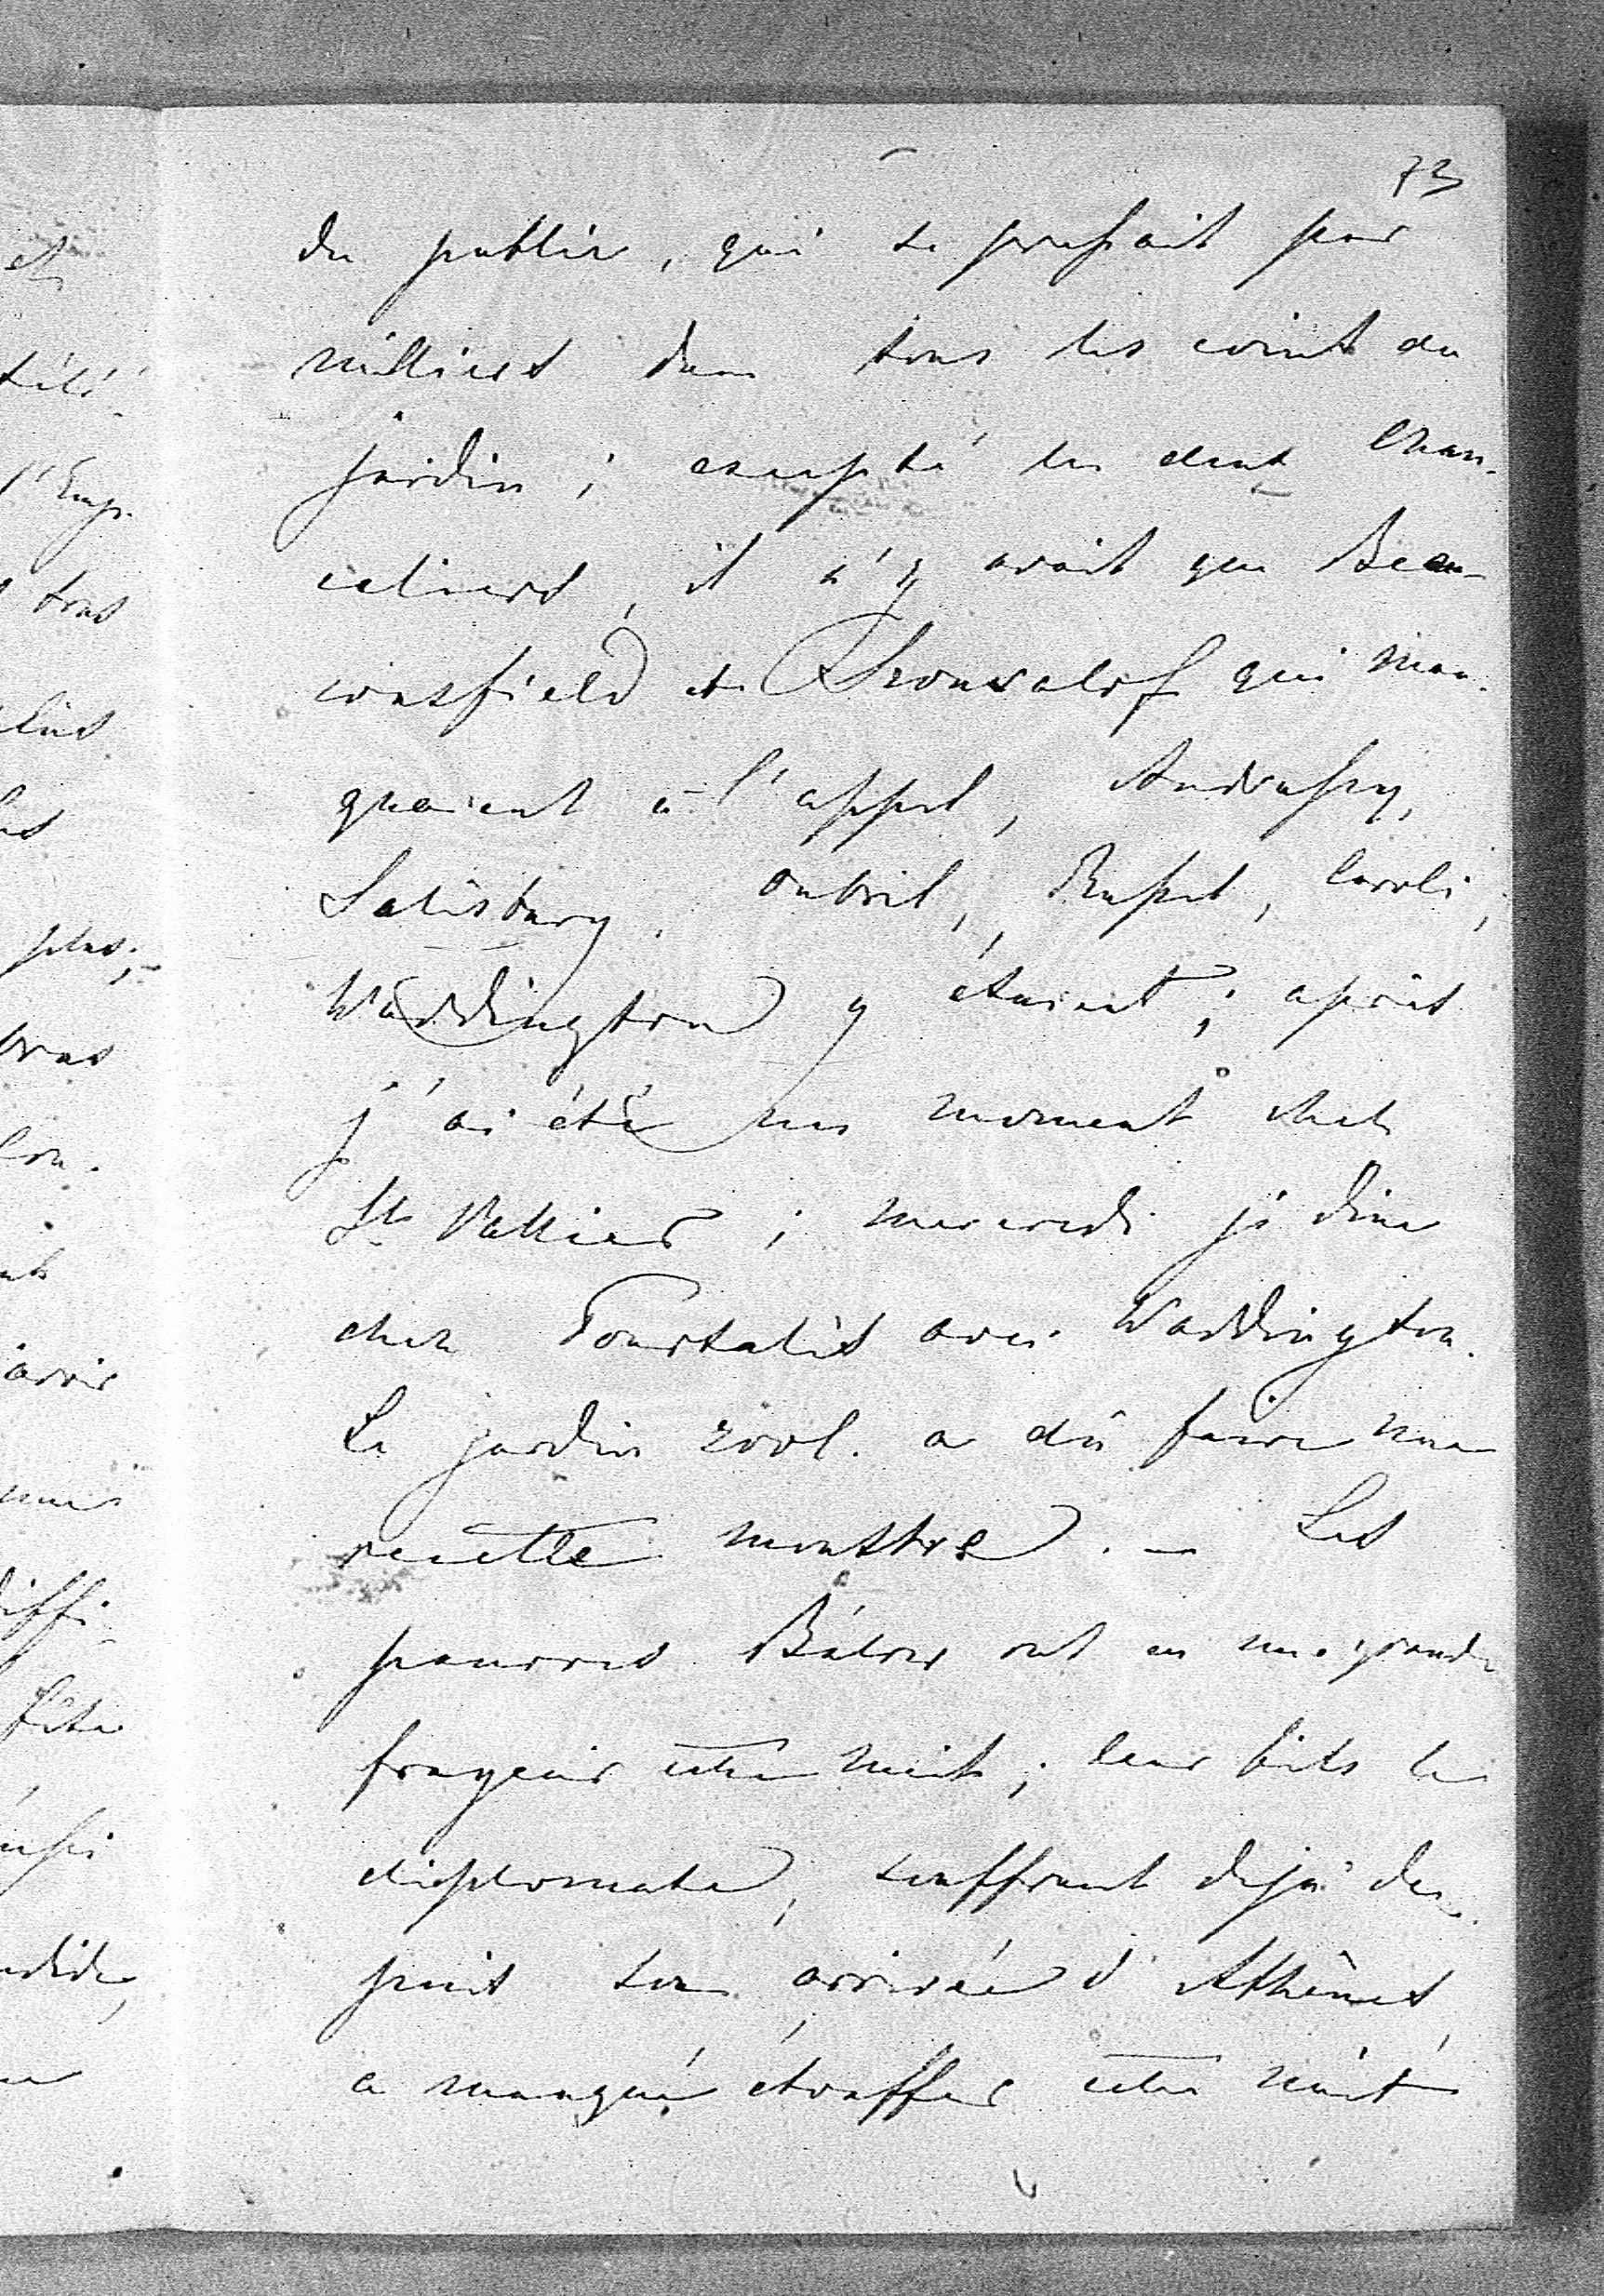 73
du public, qui se pressait par
milliers dans tous les coins du
jardin; excepté les deux Chan-
celiers, il n'y avait que Beau-
consfield et Schouvalof qui man-
quaient à l'appel, Andrassy,
Salisbury, Oubril, Russel, Corti,
Waddington y étaient; après
j'ai été un moment chez
St Vallier; mercredi je dine
chez Pourtalès avec Waddington.
Le jardin zool. a dû faire une
recette monstre. — Les
pauvres Bülow ont eu une grande
frayeur cette nuit; leur fils le
diplomate, souffrant déjà de-
puis son arrivée d'Athènes,
a manqué étouffer cette nuit
l'Emp.
tous
plus
bras
avoir
diffi-